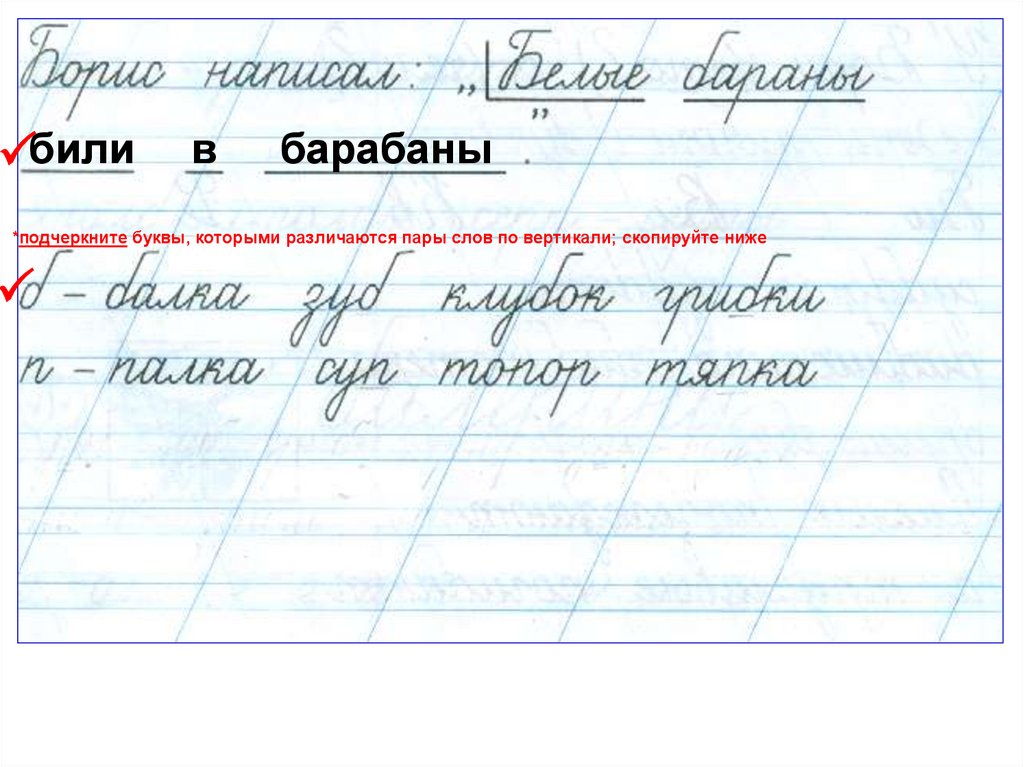 Борис написал: „Белые бараны
били в барабаны”.
*подчеркните буквы, которыми различаются пары слов по вертикали; скопируйте ниже
б – балка зуб клубок грибки
п – палка суп топор тяпка